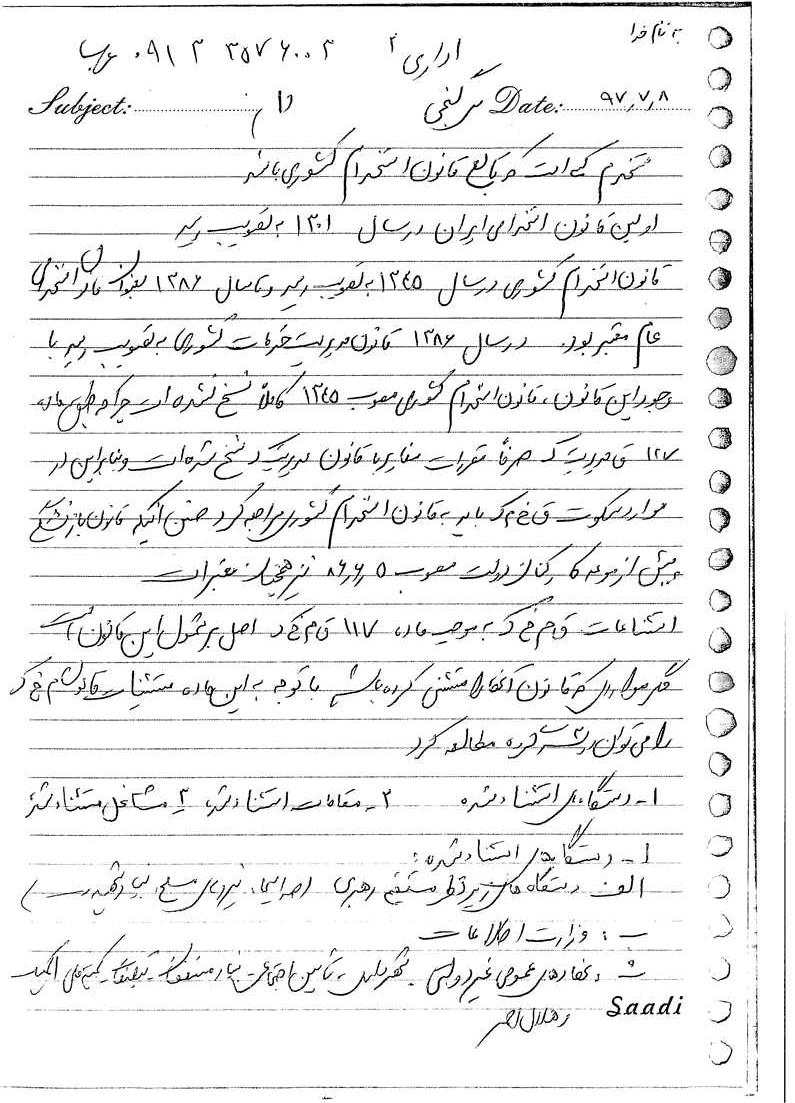 به نام خدا
اداری ۲ ۰۹۱۳ ۳۵۷۶۰۰۳ عرب
Subject: Date: ۹۷٫۷٫۸
مستخدم کسی است که تابع قانون استخدام کشوری باشد
اولین قانون استخدامی ایران در سال ۱۳۰۱ به تصویب رسید
قانون استخدام کشوری در سال ۱۳۴۵ به تصویب رسید و تا سال ۱۳۸۶ بعنوان قانون استخدامی
عام معتبر بود. در سال ۱۳۸۶ قانون مدیریت خدمات کشوری به تصویب رسید با
وجود این قانون، قانون استخدام کشوری مصوب ۱۳۴۵ کاملاً نسخ نشده است چرا که طبق ماده
۱۲۷ ق مدیریت ک صرفاً مقررات مغایر با قانون مدیریت نسخ شده است و بنابراین در
موارد سکوت ق خ م ک باید به قانون استخدام کشوری مراجعه کرد ضمن آنکه قانون بازنشستگی
پیش از موعد کارکنان دولت مصوب ۸۶٫۶٫۵ نیز همچنان معتبر است
استثناعات ق م خ ک به موجب ماده ۱۱۷ ق م خ ک اصل بر شمول این قانون است
مگر مواردی که قانون آنها را مستثنی کرده باشد با توجه به این ماده مستثنیات قانون م خ ک
را می توان در سه گروه مطالعه کرد
۱- دستگاه های استثناء شده ۲- مقامات استثناء شده ۳- مشاغل مستثناء شده
۱- دستگاه های استثناء شده:
الف دستگاه های زیر نظر مستقیم رهبری (صدا سیما، نیروهای مسلح، بنیاد شهید
ب: وزارت اطلاعات
ث: نهادهای عمومی غیر دولتی شهرداری، تأمین اجتماعی، بنیاد مستضعفان، تبلیغات، کمیته ملی المپیک
و هلال احمر
Saadi